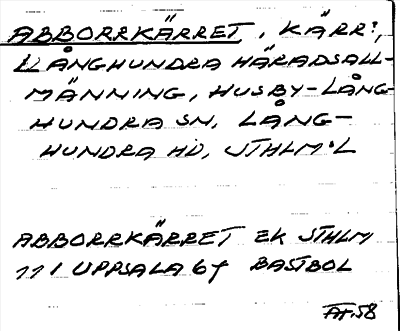 ABBORRKÄRRET, KÄRR:,
LÅNGHUNDRA HÄRADSALL-
MÄNNING, HUSBY-LÅNG-
HUNDRA SN, LÅNG-
HUNDRA HD, STHLM:L
ABBORRKÄRRET EK STHLM
111 UPPSALA 6f BASTBOL